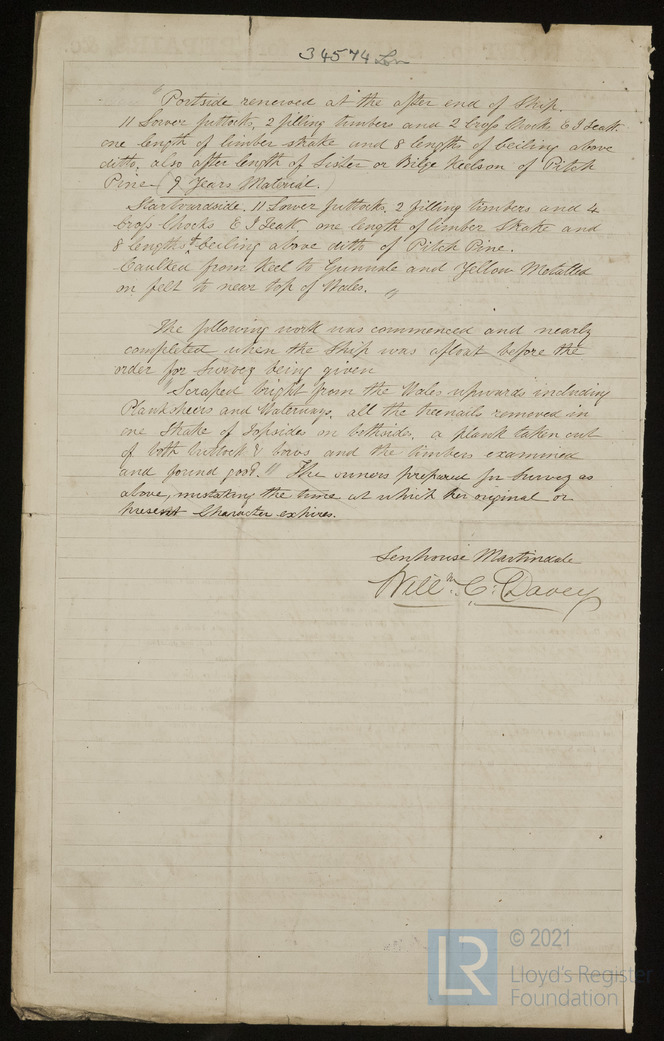 34574 Lon
"Portside renewed at the after end of Ship.
11 Lower futtocks, 2 filling timbers and 2 Cross Chocks E I Teak.
one length of limber strake and 8 lengths of Ceiling above
ditto, also after length of Sister or Bilge Keelson of Pitch
Pine (9 Years Material.)
Starboardside. 11 Lower futtocks, 2 filling timbers and 4
Cross Chocks E I Teak. one length of limber Strake and
8 lengths of Ceiling above ditto of Pitch Pine.
Caulked from Keel to Gunnale and Yellow Metalled
on felt to near top of Wales. "
The following work was commenced and nearly
completed when the Ship was afloat before the
order for Survey being given
"Scraped bright from the Wales upwards including
Planksheers and Waterways, all the treenails removed in
one Strake of Topsides on bothside, a plank taken out
of both buttock & bows and the timbers examined
and found good." The owners prepared for Survey as
above, mistaking the time at which her original or
present Character expires.
Senhouse Martindale
Willm. C. Davey
LR
© 2021
Lloyd's Register
Foundation